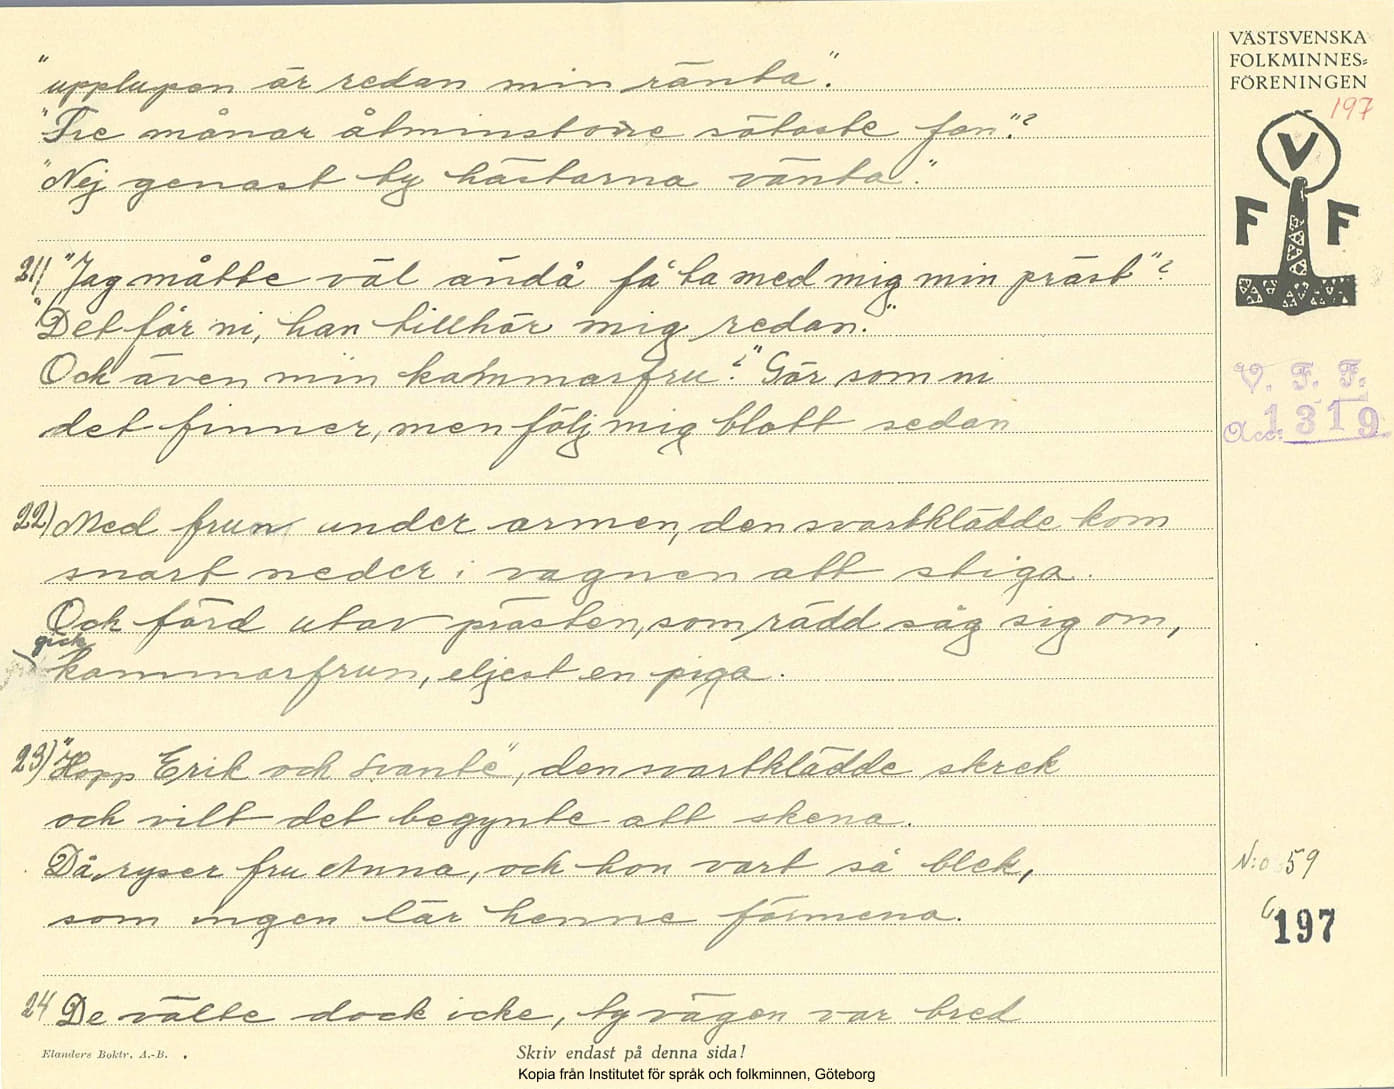 "upplupen är redan min ränta".
"Tre månar åtminstone sötaste fan"?
"Nej genast ty hästarna vänta."
21) "Jag måtte väl ändå få ta med mig min präst"?
"Det får ni, han tillhör mig redan."
Och även min kammarfru?" Gör som ni
det finner, men följ mig blott sedan
22) Med frun under armen, den svartklädde kom
snart neder i vagnen att stiga.
Och färd utav prästen, som rädd såg sig om,
gick
kammarfrun, eljest en piga.
23) "Hopp Erik och Svante", den svartklädde skrek
och vilt det begynte att skena.
Då ryser fru Anna, och hon vart så blek,
som ingen lär henne förmena.
24 De välte dock icke, ty vägen var bred
Elanders Boktr. A.-B.
Skriv endast på denna sida!
Kopia från Institutet för språk och folkminnen, Göteborg
VÄSTSVENSKA
FOLKMINNES=
FÖRENINGEN
197
V
F F
V. F. F.
Acc: 1319
N:o 59
197